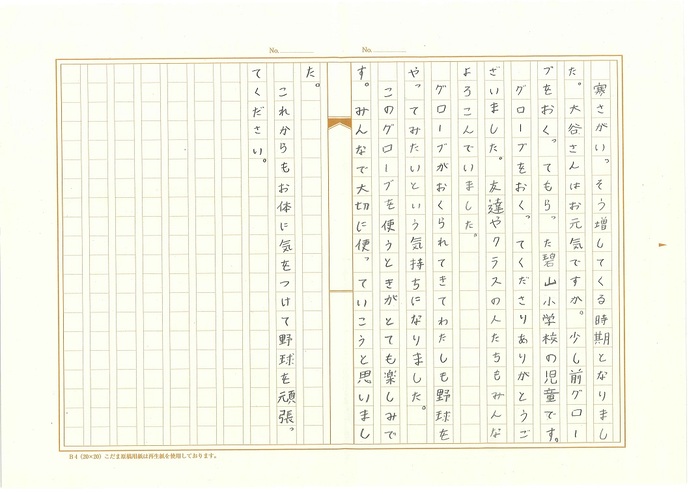 No.
No.
寒さがいっそう増してくる時期となりまし
た。大谷さんはお元気ですか。少し前グロー
ブをおくってもらった碧山小学校の児童です。
グローブをおくってくださりありがとうご
ざいました。友達やクラスの人たちもみんな
よろこんでいました。
グローブがおくられてきてわたしも野球を
やってみたいという気持ちになりました。
このグローブを使うときがとても楽しみで
す。みんなで大切に使っていこうと思いまし
た。
これからもお体に気をつけて野球を頑張っ
てください。
B4(20×20)こだま原稿用紙は再生紙を使用しております。